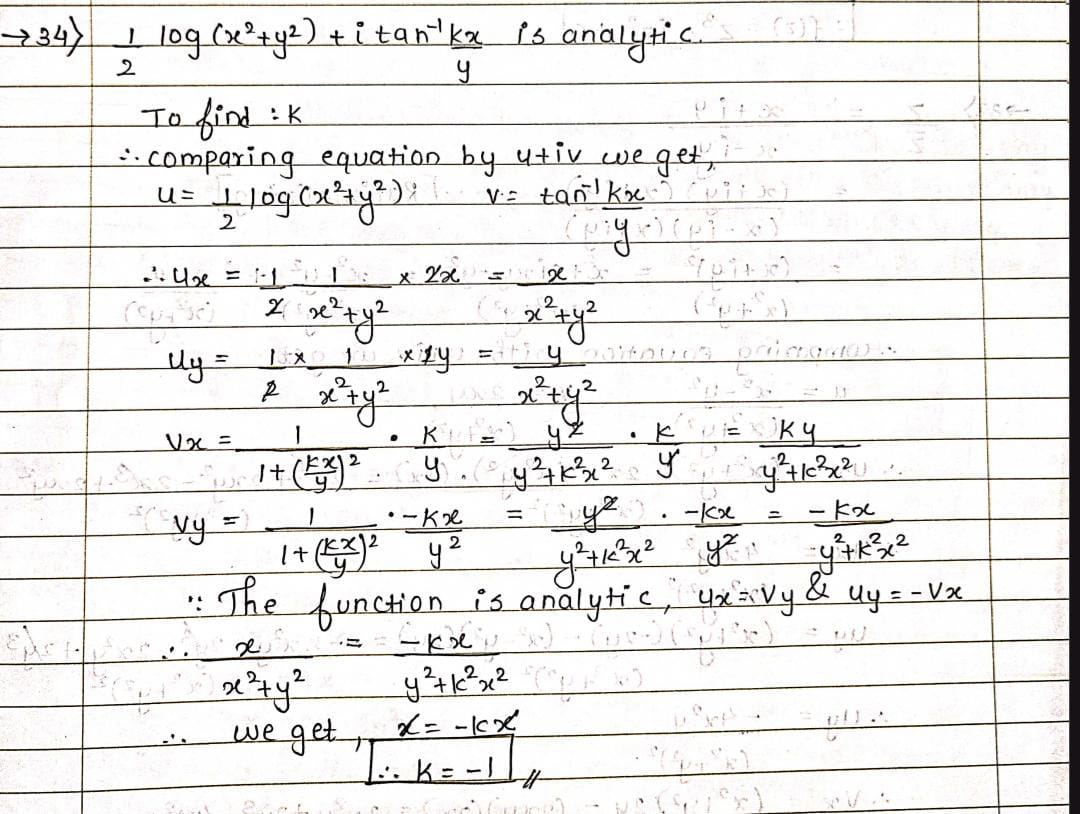 →34) 1/2 log (x²+y²) + i tan⁻¹ kx/y is analytic.
To find : K
∴ comparing equation by u+iv we get,
u = 1/2 log(x²+y²) ; v = tan⁻¹ kx/y
∴ Ux = 1/2 1/x²+y² × 2x = x/x²+y²
Uy = 1/2 × 1/x²+y² × 2y = y/x²+y²
Vx = 1/1+(kx/y)² • K/y = y²/y²+k²x² • K/y = Ky/y²+k²x²
Vy = 1/1+(kx/y)² • -Kx/y² = y²/y²+k²x² • -kx/y² = -kx/y²+k²x²
∵ The function is analytic, Ux = Vy & Uy = -Vx
∴ x/x²+y² = -kx/y²+k²x²
∴ we get, x = -kx
∴ K = -1 //